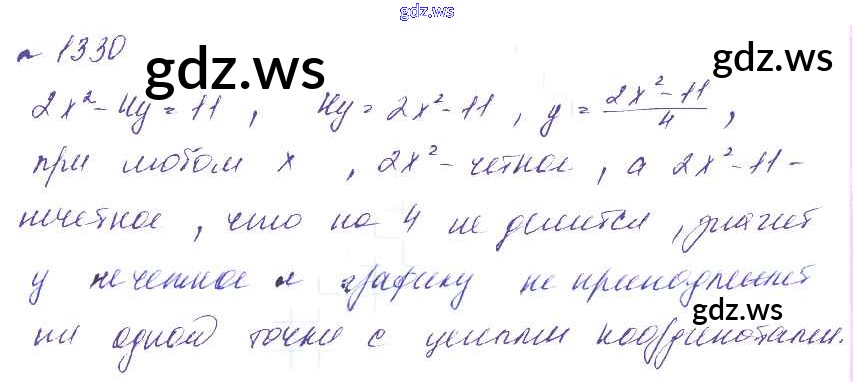 gdz.ws
№ 1330
gdz.ws
gdz.ws
2x² - 4y = 11 , 4y = 2x² - 11 , y = (2x² - 11)/4 ,
при любом x , 2x² - четное , а 2x² - 11 -
нечетное , что на 4 не делится , значит
gdz.ws
у не целое и графику не принадлежит
gdz.ws
ни одной точки с целыми координатами.